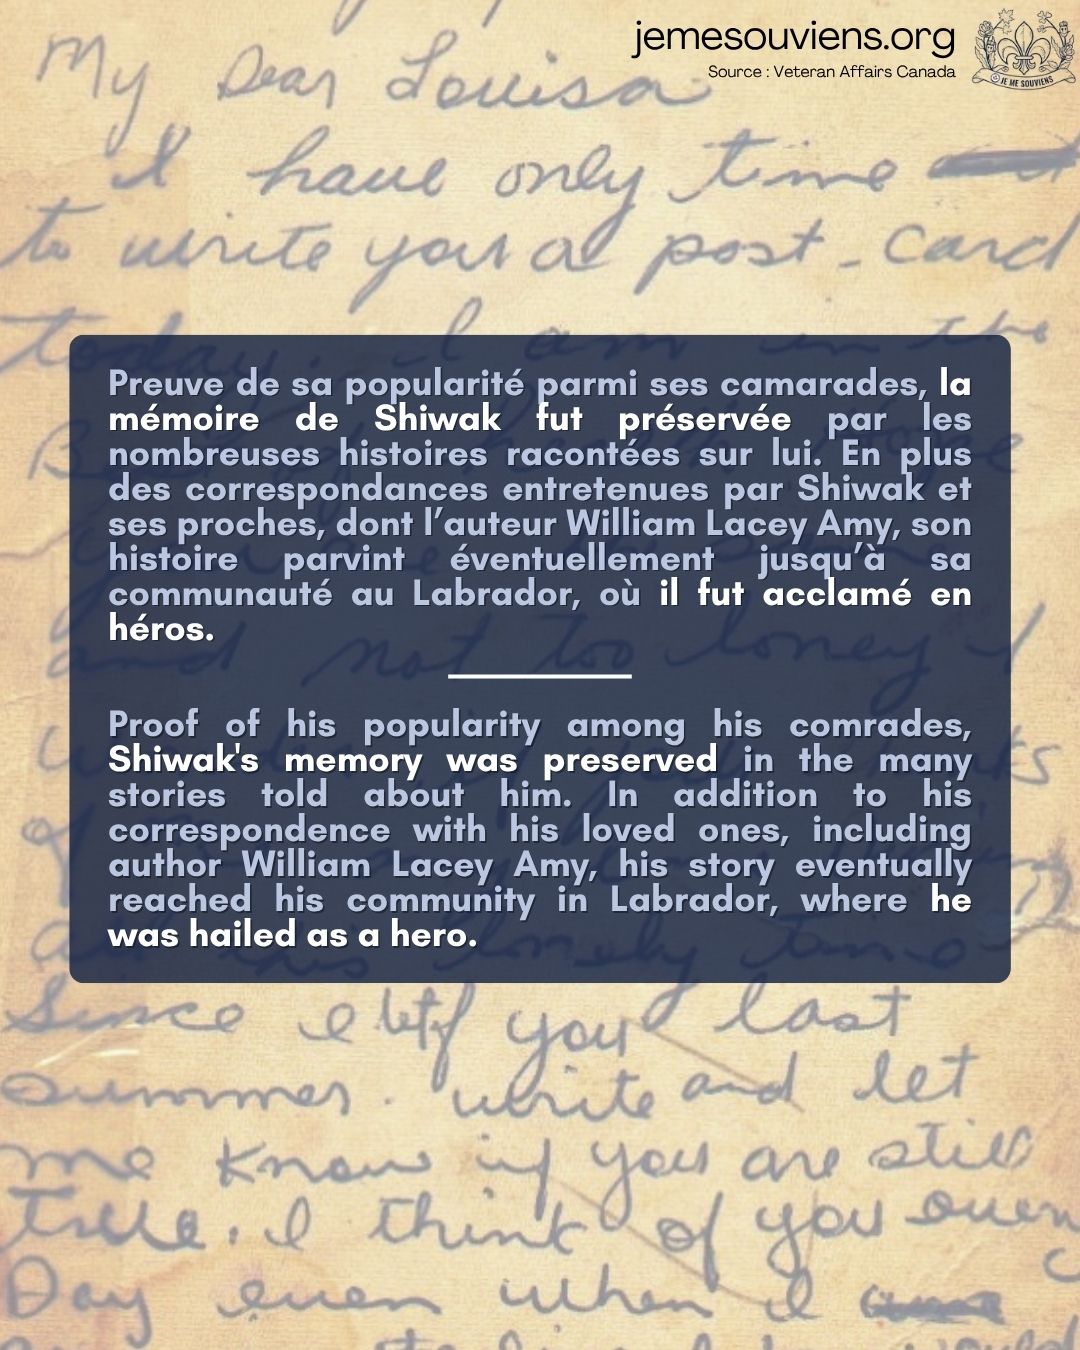 jemesouviens.org
Source : Veteran Affairs Canada
JE ME SOUVIENS
My Dear Louisa
I have only time
to write you a post-card
today. I am in the
Preuve de sa popularité parmi ses camarades, la
mémoire de Shiwak fut préservée par les
nombreuses histoires racontées sur lui. En plus
des correspondances entretenues par Shiwak et
ses proches, dont l’auteur William Lacey Amy, son
histoire parvint éventuellement jusqu’à sa
communauté au Labrador, où il fut acclamé en
héros.
and not too loney I
Proof of his popularity among his comrades,
Shiwak's memory was preserved in the many
stories told about him. In addition to his
correspondence with his loved ones, including
author William Lacey Amy, his story eventually
reached his community in Labrador, where he
was hailed as a hero.
this lonely time
Since I left you last
summer. write and let
me know if you are still
true. I think of you
Day even when I